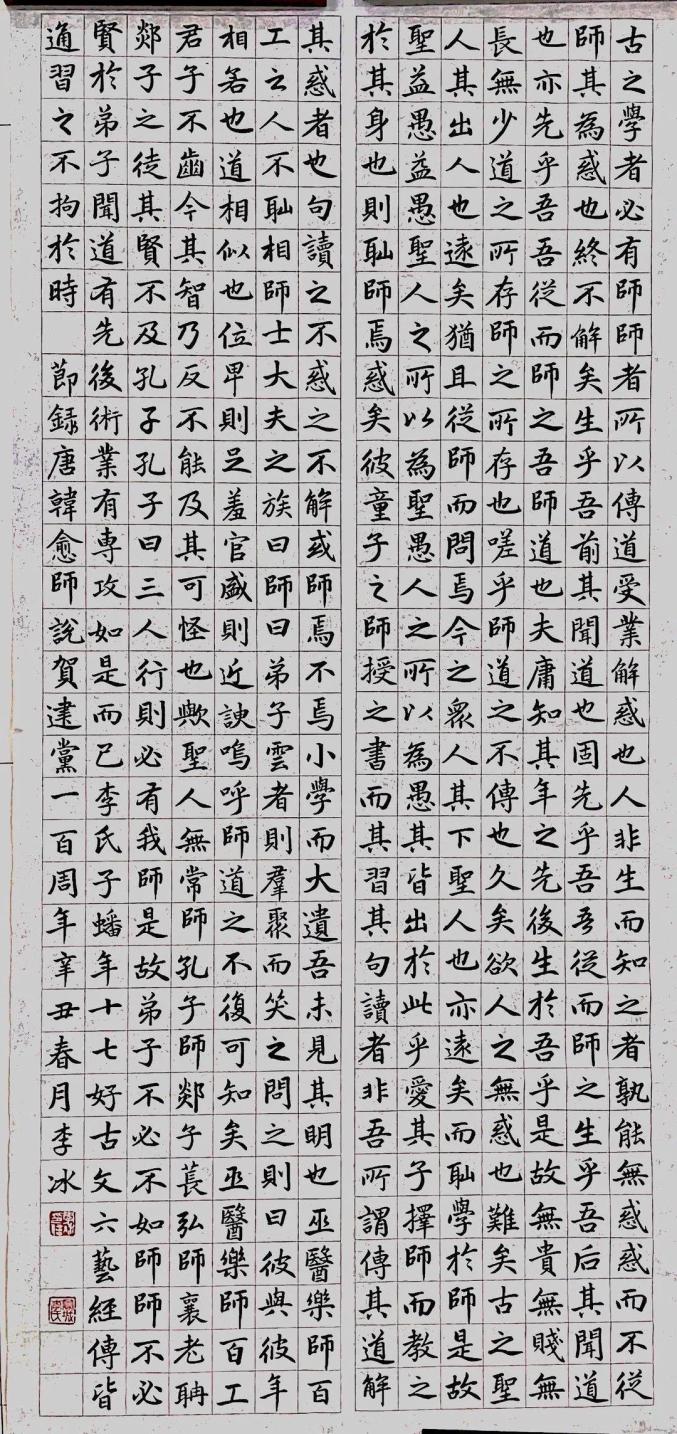 古之學者必有師師者所以傳道受業解惑也人非生而知之者孰能無惑惑而不從
師其為惑也終不解矣生乎吾前其聞道也固先乎吾吾從而師之生乎吾后其聞道
也亦先乎吾吾從而師之吾師道也夫庸知其年之先後生於吾乎是故無貴無賤無
長無少道之所存師之所存也嗟乎師道之不傳也久矣欲人之無惑也難矣古之聖
人其出人也遠矣猶且從師而問焉今之眾人其下聖人也亦遠矣而耻學於師是故
聖益愚益愚聖人之所以為聖愚人之所以為愚其皆出於此乎愛其子擇師而教之
於其身也則耻師焉惑矣彼童子之師授之書而其習其句讀者非吾所謂傳其道解
其惑者也句讀之不惑之不解或師焉不焉小學而大遺吾未見其明也巫醫樂師百
工之人不耻相師士大夫之族曰師曰弟子雲者則羣聚而笑之問之則曰彼與彼年
相若也道相似也位卑則足羞官盛則近諛嗚呼師道之不復可知矣巫醫樂師百工
君子不齒今其智乃反不能及其可怪也歟聖人無常師孔子師郯子萇弘師襄老聃
郯子之徒其賢不及孔子孔子曰三人行則必有我師是故弟子不必不如師師不必
賢於弟子聞道有先後術業有專攻如是而已李氏子蟠年十七好古文六藝經傳皆
通習之不拘於時 節録唐韓愈師說賀建黨一百周年辛丑春月李冰